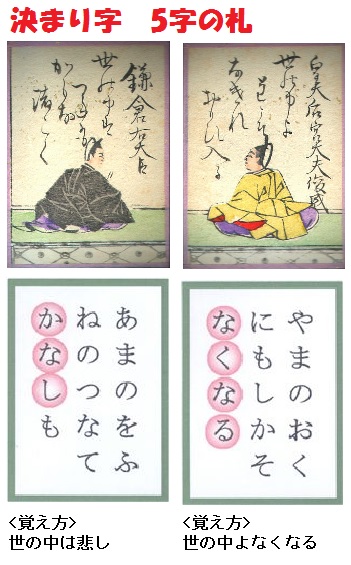 決まり字 5字の札
鎌倉右大臣
世の中は
渚こく
皇太后宮大夫俊成
世の中よ
道こそ
なけれ
おもひ入る
あまのをふ
ねのつなて
かなしも
やまのおく
にもしかそ
なくなる
<覚え方>
世の中は悲し
<覚え方>
世の中よなくなる